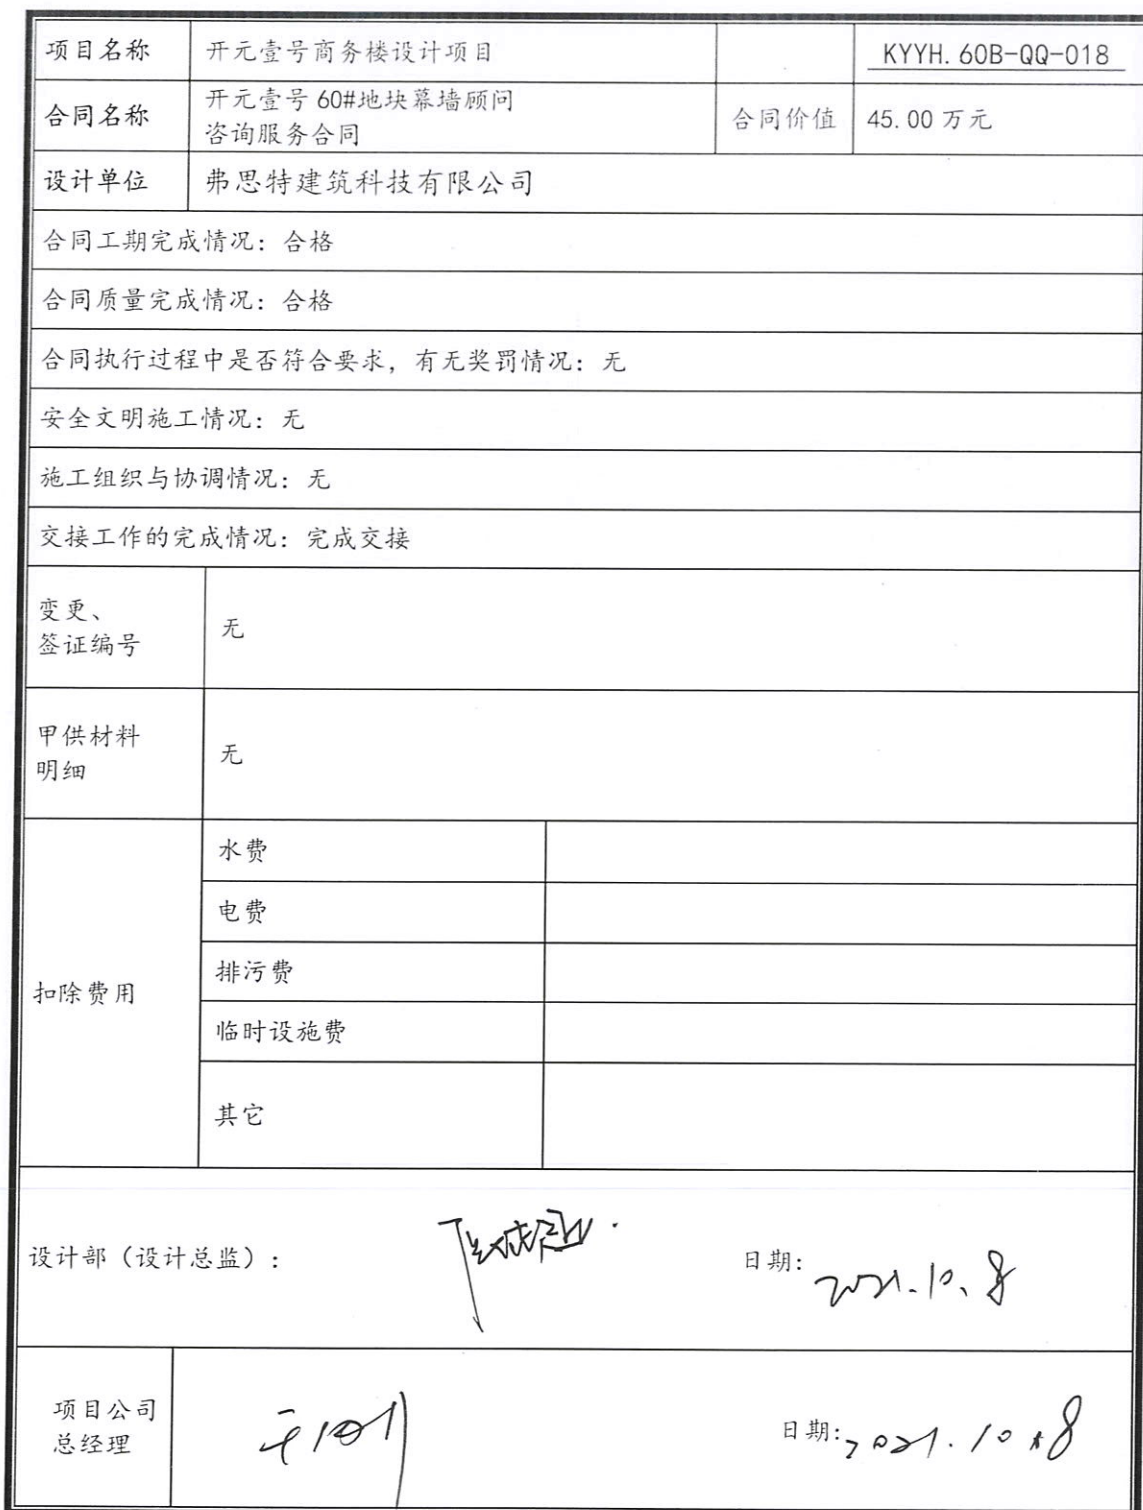 项目名称 开元壹号商务楼设计项目 KYYH.60B-QQ-018
合同名称 开元壹号 60#地块幕墙顾问
咨询服务合同 合同价值 45.00 万元
设计单位 弗思特建筑科技有限公司
合同工期完成情况：合格
合同质量完成情况：合格
合同执行过程中是否符合要求，有无奖罚情况：无
安全文明施工情况：无
施工组织与协调情况：无
交接工作的完成情况：完成交接
变更、
签证编号 无
甲供材料
明细 无
扣除费用
水费
电费
排污费
临时设施费
其它
设计部（设计总监）： 日期：2021.10.8
项目公司
总经理 日期：2021.10.8